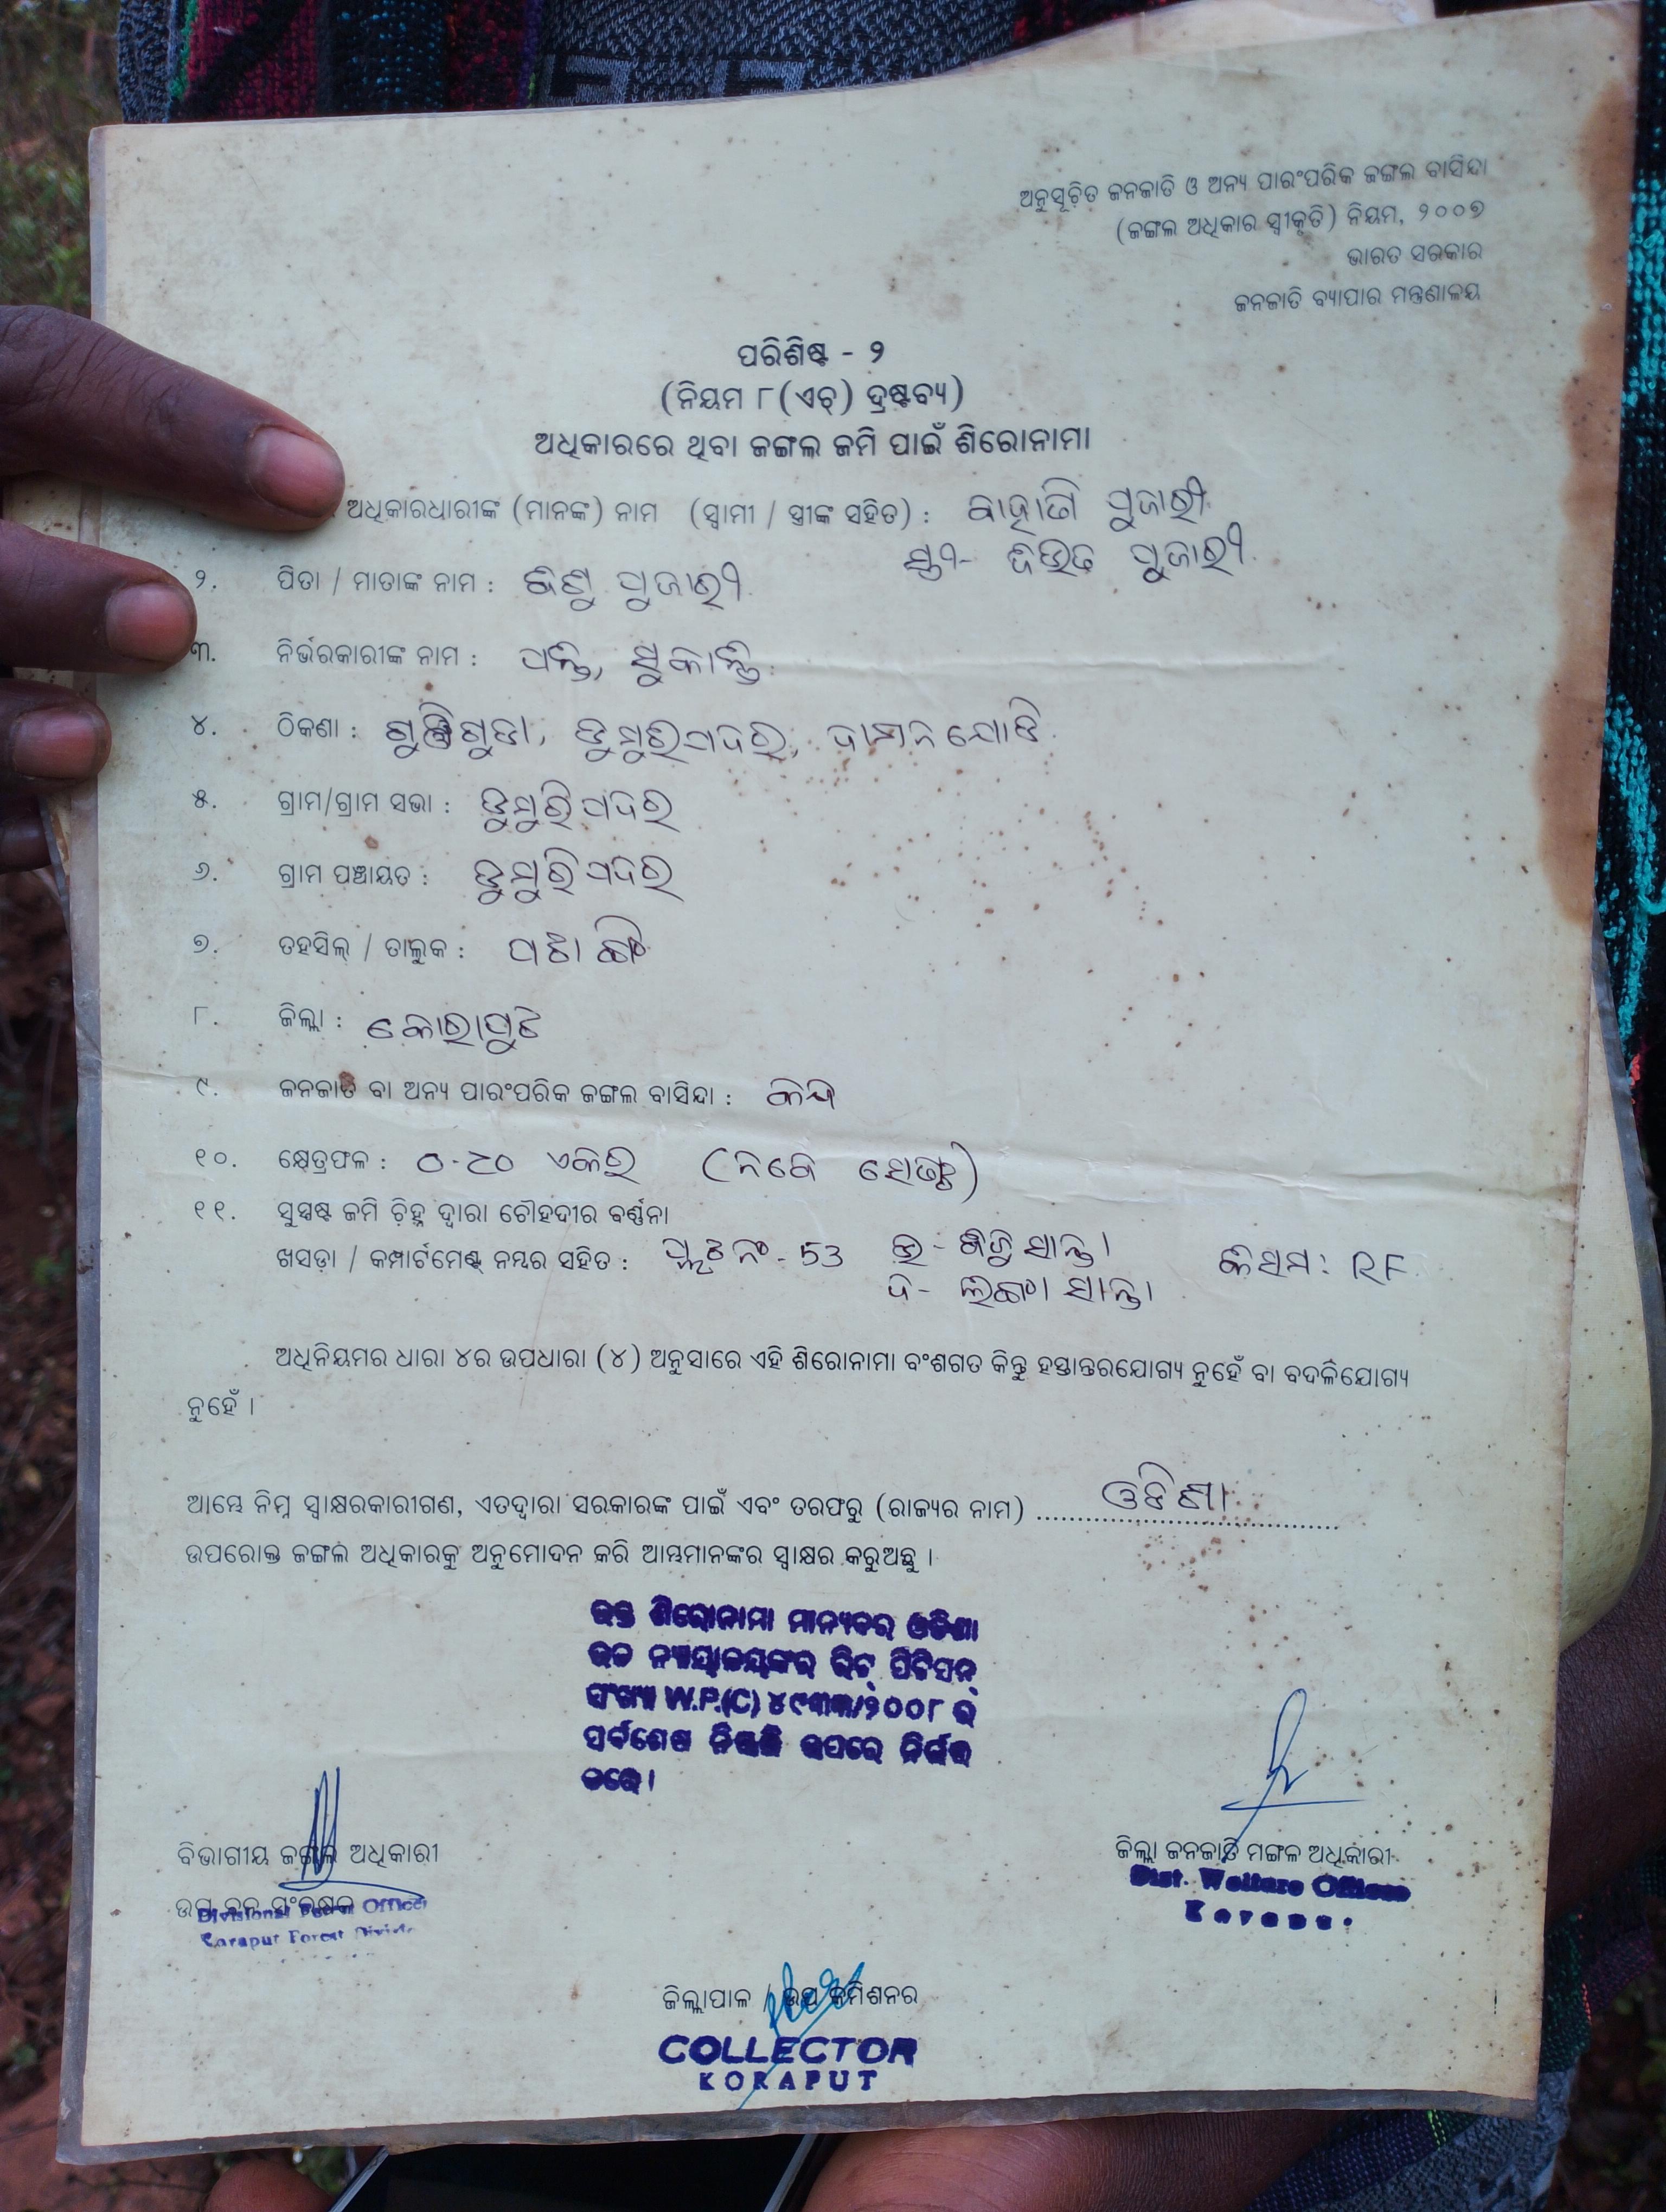 ଅନୁସୂଚିତ ଜନଜାତି ଓ ଅନ୍ୟ ପାରଂପରିକ ଜଙ୍ଗଲ ବାସିନ୍ଦା
(ଜଙ୍ଗଲ ଅଧିକାର ସ୍ୱୀକୃତି) ନିୟମ, ୨୦୦୭
ଭାରତ ସରକାର
ଜନଜାତି ବ୍ୟାପାର ମନ୍ତ୍ରଣାଳୟ
ପରିଶିଷ୍ଟ - ୨
(ନିୟମ ୮(ଏଚ୍) ଦ୍ରଷ୍ଟବ୍ୟ)
ଅଧିକାରରେ ଥିବା ଜଙ୍ଗଲ ଜମି ପାଇଁ ଶିରୋନାମା
ଅଧିକାରଧାରୀଙ୍କ (ମାନଙ୍କ) ନାମ (ସ୍ୱାମୀ / ସ୍ତ୍ରୀଙ୍କ ସହିତ) : ପୁଜାରୀ
ସ୍ତ୍ରୀ- ପୁଜାରୀ
୨. ପିତା / ମାତାଙ୍କ ନାମ : ପୁଜାରୀ
୩. ନିର୍ଭରକାରୀଙ୍କ ନାମ : ସୁକାନ୍ତି
୪. ଠିକଣା : ଡୁମୁରିପଦର, ଦାମନଯୋଡି
୫. ଗ୍ରାମ/ଗ୍ରାମ ସଭା : ଡୁମୁରିପଦର
୬. ଗ୍ରାମ ପଞ୍ଚାୟତ : ଡୁମୁରିପଦର
୭. ତହସିଲ୍ / ତାଲୁକ : ପଟାଙ୍ଗି
୮. ଜିଲ୍ଲା : କୋରାପୁଟ
୯. ଜନଜାତି ବା ଅନ୍ୟ ପାରଂପରିକ ଜଙ୍ଗଲ ବାସିନ୍ଦା : କନ୍ଧ
୧୦. କ୍ଷେତ୍ରଫଳ : ୦-୯୦ ଏକର
୧୧. ସୁସ୍ପଷ୍ଟ ଜମି ଚିହ୍ନ ଦ୍ୱାରା ଚୌହଦୀର ବର୍ଣ୍ଣନା
ଖସଡ଼ା / କମ୍ପାର୍ଟମେଣ୍ଟ୍ ନମ୍ବର ସହିତ : ପ୍ଲଟ ନଂ - 53 ଉ - ସାନ୍ତା କିସମ: RF
ଦ - ସାନ୍ତା
ଅଧିନିୟମର ଧାରା ୪ର ଉପଧାରା (୪) ଅନୁସାରେ ଏହି ଶିରୋନାମା ବଂଶଗତ କିନ୍ତୁ ହସ୍ତାନ୍ତରଯୋଗ୍ୟ ନୁହେଁ ବା ବଦଳିଯୋଗ୍ୟ
ନୁହେଁ ।
ଆମ୍ଭେ ନିମ୍ନ ସ୍ୱାକ୍ଷରକାରୀଗଣ, ଏତଦ୍ୱାରା ସରକାରଙ୍କ ପାଇଁ ଏବଂ ତରଫରୁ (ରାଜ୍ୟର ନାମ) ଓଡିଶା
ଉପରୋକ୍ତ ଜଙ୍ଗଲ ଅଧିକାରକୁ ଅନୁମୋଦନ କରି ଆମ୍ଭମାନଙ୍କର ସ୍ୱାକ୍ଷର କରୁଅଛୁ ।
ଉକ୍ତ ଶିରୋନାମା ମାନ୍ୟବର ଓଡିଶା
ଉଚ୍ଚ ନ୍ୟାୟାଳୟଙ୍କର ରିଟ୍ ପିଟିସନ୍
ସଂଖ୍ୟା W.P.(C) ୪୯୩୩/୨୦୦୮ ର
ସର୍ବଶେଷ ନିଷ୍ପତ୍ତି ଉପରେ ନିର୍ଭର
କରେ।
ବିଭାଗୀୟ ଜଙ୍ଗଲ ଅଧିକାରୀ
ଉପ ବନ ସଂରକ୍ଷକ
Divisional Forest Officer
Koraput Forest Division
ଜିଲ୍ଲା ଜନଜାତି ମଙ୍ଗଳ ଅଧିକାରୀ
Dist. Welfare Officer
Koraput
ଜିଲ୍ଲାପାଳ / ଉପ କମିଶନର
COLLECTOR
KORAPUT